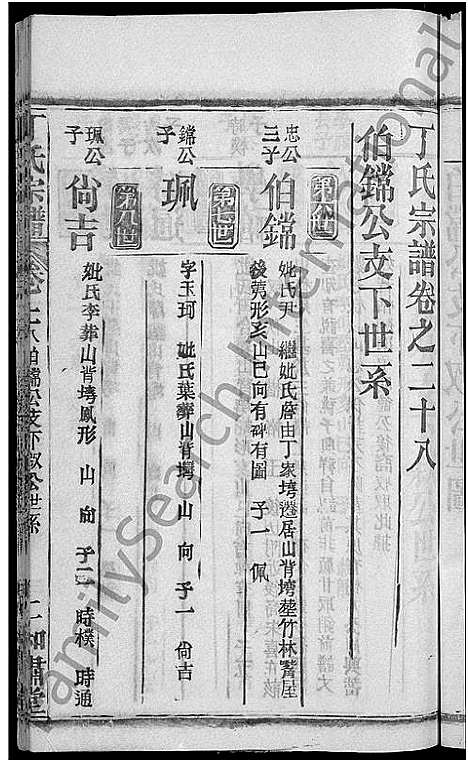 丁氏宗譜卷之二十八
伯鐺公支下世系
第六世
忠公三子 伯鐺
妣氏尹 繼妣氏詹由丁家塆遷居山背塆塟竹林窩屋
後
形亥山巳向有碑有圖 子一 佩
第七世
鐺公子 珮
字玉珂 妣氏葉葬山背塆 山 向 子一 尙吉
第八世
珮公子 尙吉
妣氏李葬山背塆鳳形 山 向 子二 時樸 時通
丁氏宗譜
伯鐺公支下
公世系
FamilySearch International